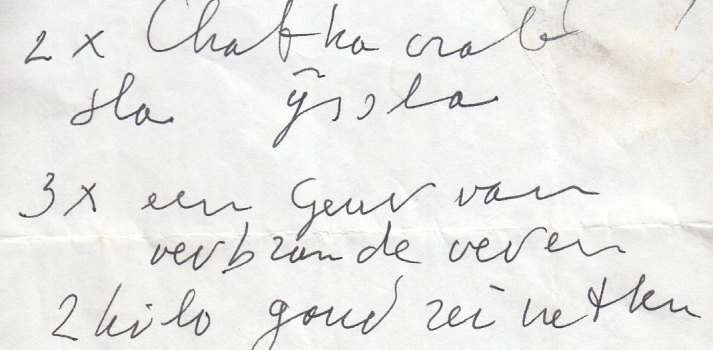 2 x Chatka crab
sla ijssla
3 x een Geur van
verbrande veren
2 kilo goud reinetten